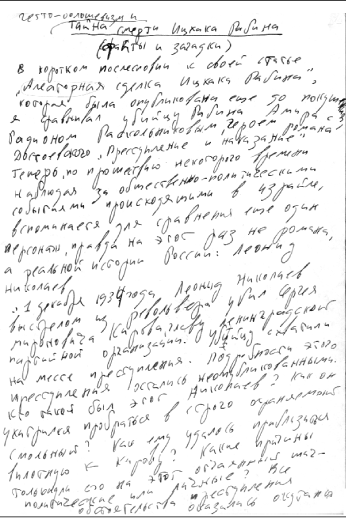 гетто-большевизм и
тайна смерти Ицхака Рабина
(факты и загадки)
В коротком послесловии к своей статье
"Алеаторная сделка Ицхака Рабина",
которая была опубликована еще до
я сравнивал убийцу Рабина Амира с
Родионом Раскольниковым героем романа
Достоевского "Преступление и наказание".
Теперь, по прошествию некоторого времени
наблюдая за общественно-политическими
событиями происходящими в Израйле,
вспоминается для сравнения еще один
персонаж, правда на этот раз не романа,
а реальной истории России: Леонид
Николаев
1 декабря 1934 года, Леонид Николаев
выстрелом из револьвера убил Сергея
Мироновича Кирова, главу ленинградской
партийной организации. Убийцу схватили
на месте преступления. Подробности этого
преступления остались неопубликованными.
Кто такой был этот Николаев? Как он
ухитрился пробраться в строго охраняемый
Смольный? Как ему удалось приблизиться
вплотную к Кирову? Какие причины
толкнули его на этот отчаянный шаг-
политические или личные? Все
обстоятельства преступления
оказались окутаны